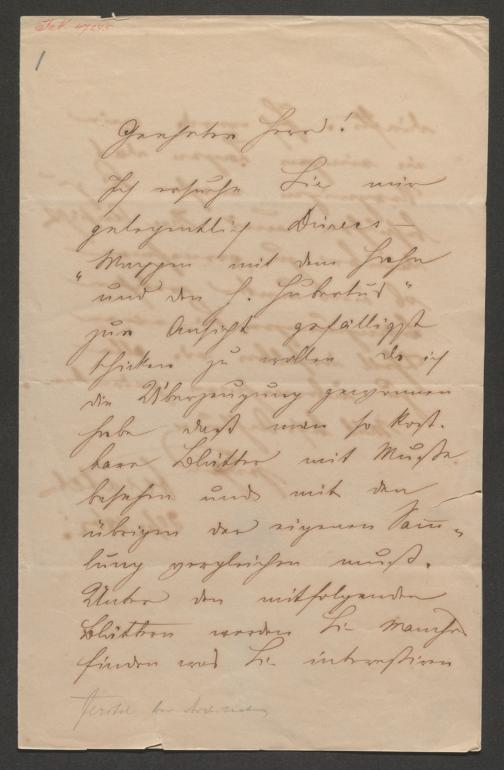 1
Geehrter Herr!
Ich ersuche Sie mir
gelegentlich Dürers –
"Wappen mit dem Hahn
und den h. Hubertus"
zur Ansicht gefälligst
schicken zu wollen da ich
die Überzeugung gewonnen
habe daß man so kost-
bare Blätter mit Muße
besehen und mit den
übrigen der eigenen Samm-
lung vergleichen muß.
Unter den mitfolgenden
Blättern werden Sie Manches
finden was Sie interessiren